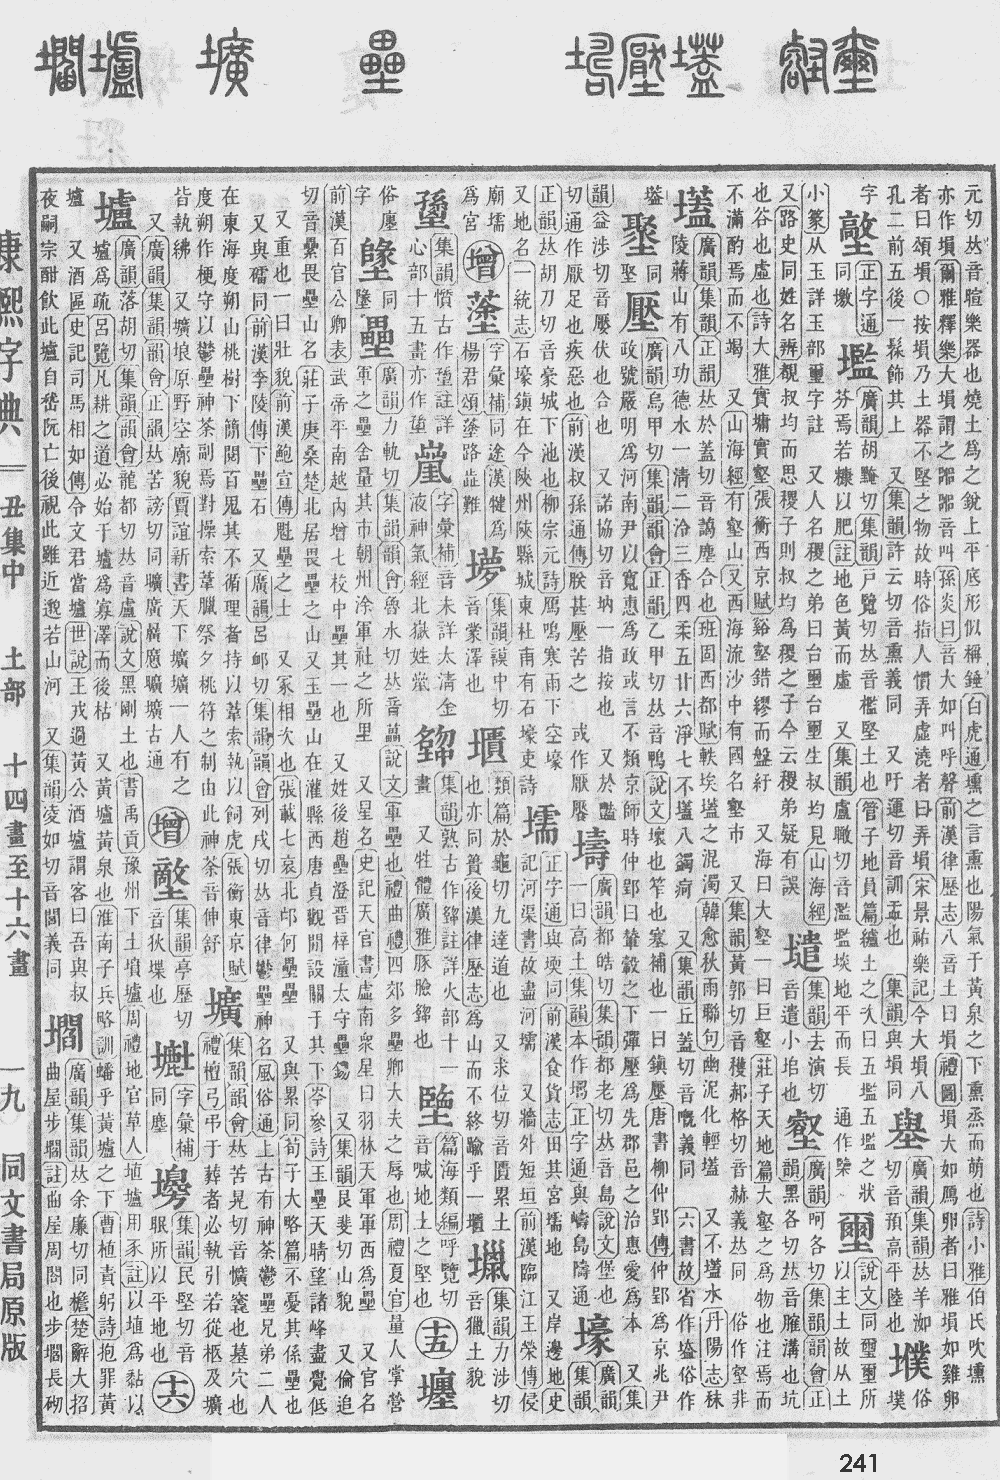 元切𠀤音暄樂器也燒土爲之銳上平底形似稱錘白虎通壎之言熏也陽氣于黃泉之下熏蒸而萌也詩小雅伯氏吹壎
亦作塤爾雅釋樂大塤謂之嘂嘂音叫孫炎曰音大如叫呼聲前漢律歷志八音土曰塤禮圖塤大如鴈卵者曰雅塤如雞卵
者曰頌塤○按塤乃土器不堅之物故時俗指人慣弄虛澆者曰弄塤宋景祐樂記今大塤八
孔二前五後一髹飾其上 又集韻許云切音熏義同 又吁運切音訓盂也 集韻與塤同
𡑪 廣韻集韻𠀤羊洳切音預高平陸也
墣 俗墣字
墽 正字通同墩
壏 廣韻胡黤切集韻戸覽切𠀤音檻堅土也管子地員篇纑土之次曰五壏五壏之狀芬焉若糠以肥註地色黃而虛 又集韻盧瞰切音濫壏埮地平而長 通作㯺
壐 說文同璽璽所以主土故从土小篆从玉詳玉部璽字註 又人名稷之弟曰台壐台壐生叔均見山海經
又路史同姓名辨覩叔均而思稷子則叔均爲稷之子今云稷弟疑有誤
壝 集韻去演切音遣小坮也
壑 廣韻呵各切集韻韻會正韻黑各切𠀤音臛溝也坑也谷也虛也詩大雅實墉實壑張衡西京賦谿壑錯繆而盤紆 又海曰大壑一曰巨壑莊子天地篇大壑之爲物也注焉而
不滿酌焉而不竭 又山海經有壑山又西海流沙中有國名壑市 又集韻黃郭切音穫郝格切音赫義𠀤同 俗作壑非
壒 廣韻集韻正韻𠀤於蓋切音藹塵合也班固西都賦軼埃壒之混濁韓愈秋雨聯句幽泥化輕壒 又不壒水丹陽志秣
陵蔣山有八功德水一淸二冷三香四柔五甘六淨七不壒八蠲痾 又集韻丘蓋切音嘅義同 六書故省作𡏖俗作壒
壓 廣韻烏甲切集韻韻會正韻乙甲切𠀤音鴨說文壞也笮也塞補也一曰鎭壓唐書柳仲郢傳仲郢爲京兆尹政號嚴明爲河南尹以寬惠爲政或言不類京師時仲郢曰輦轂之下彈壓爲先郡邑之治惠愛爲本 又集
韻益涉切音魘伏也合也 又諾協切音𡖓一指按也 又於豔
切通作厭足也疾惡也前漢叔孫通傳朕甚壓苦之 或作厭
壔 廣韻都皓切集韻都老切𠀤音島說文堡也一曰高土集韻本作㙞正字通與嶹島隯通
壕 廣韻集韻正韻𠀤胡刀切音豪城下池也柳宗元詩鴈鳴寒雨下空壕
又地名一統志石壕鎭在今陝州陝縣城東杜甫有石壕吏詩
壖 正字通與堧同前漢食貨志田其宮壖地 又岸邊地史記河渠書故盡河壖 又牆外短垣前漢臨江王榮傳侵廟壖爲宮
增
壗 楊君頌蓬路誰難 字彙補同途漢𤛭爲
㙹 集韻謨中切音蒙澤也
櫃 類篇於龜切九達道也
也亦同簣後漢律歷志爲山而不終踰乎一壏 又求位切音匱累土
𡓍 集韻力涉切音獵土貌
心部十五畫亦作𡐦 集韻憤古作𡐦註詳
字彙補音未詳太淸金液神氣經北嶽姓𡼏
集韻熟古作䥆註詳火部十一畫 又牲體廣雅豚臉䥆也
墍 篇海類編呼覽切音喊地土之堅也
十五
㙻 俗廛字
壘 廣韻力軌切集韻韻會魯水切𠀤音藟說文軍壘也禮曲禮四郊多壘卿大夫之辱也周禮夏官量人掌營軍之壘舍量其市朝州涂軍社之所里 又星名史記天官書虛南衆星曰羽林天軍軍西爲壘 又官名
前漢百官公卿表武帝平南越內增七校中壘其一也 又姓後趙壘澄晉梓潼太守壘錫 又集韻艮斐切山貌 又倫追
切音纍畏壘山名莊子庚桑楚北居畏壘之山又玉壘山在灌縣西唐貞觀閒設關于其下岑參詩玉壘天晴望諸峰盡覺低
又重也一曰壯貌前漢鮑宣傳魁壘之士 又冢相次也張載七哀北邙何壘壘 又與累同荀子大略篇不憂其係壘也
又與礧同前漢李陵傳下壘石 又廣韻呂䘏切集韻韻會列戌切𠀤音律鬱壘神名風俗通上古有神荼鬱壘兄弟二人
在東海度朔山桃樹下簡閱百鬼其不循理者持以葦索執以飼虎張衡東京賦
度朔作梗守以鬱壘神荼副焉對操索葦臘祭夕桃符之制由此神荼音伸舒
壙 集韻韻會𠀤苦晃切音懭竁也墓穴也禮檀弓弔于葬者必執引若從柩及壙皆執紼 又壙埌原野空廓貌賈誼新書天下壙壙一人有之
又廣韻集韻韻會正韻𠀤苦謗切同曠廣㢠懬曠壙古通
增
墽 集韻亭歷切音狄堞也
𡓏 字彙補同塵
𡓖 集韻民堅切音眠所以平地也
十六
壚 廣韻落胡切集韻韻會龍都切𠀤音盧說文黑剛土也書禹貢豫州下土墳壚周禮地官草人埴壚用豕註以埴爲黏以
壚爲疏呂覽凡耕之道必始于壚爲寡澤而後枯 又黃壚黃泉也淮南子兵略訓蟠乎黃壚之下曹植責躬詩抱罪黃
壚 又酒區史記司馬相如傳令文君當壚世說王戎過黃公酒壚謂客曰吾與叔
夜嗣宗酣飲此壚自嵇阮亡後視此雖近邈若山河 又集韻凌如切音閭義同
壛 廣韻集韻𠀤余廉切同檐楚辭大招曲屋步壛註曲屋周閣也步壛長砌
康熙字典 丑集中 土部 十四畫至十六畫 一九 同文書局原版
241